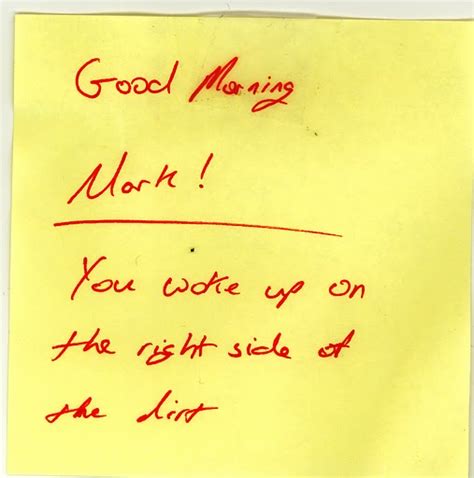 Good Morning
Mark!
You woke up on
the right side of
the dirt